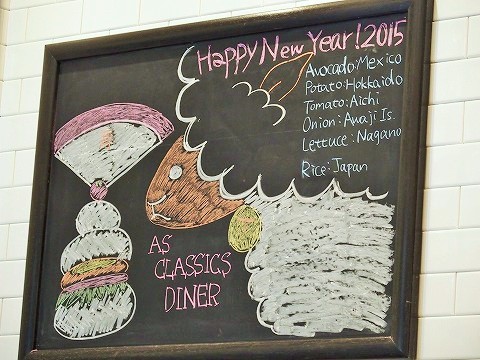 Happy New Year! 2015
Avocado: Mexico
Potato: Hokkaido
Tomato: Aichi
Onion: Awaji Is.
Lettuce: Nagano
Rice: Japan
AS
CLASSICS
DINER